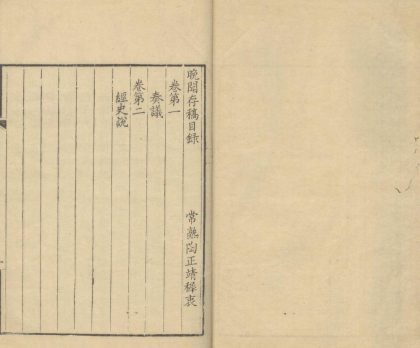 晚聞存稿目錄
常熟陶正靖稚衷
卷第一
奏議
卷第二
經史說